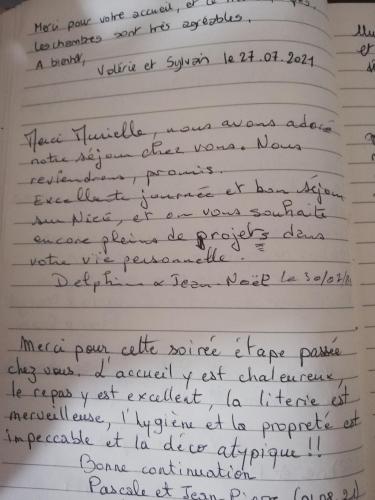 Merci pour votre accueil, et
Les chambres sont très agréables.
A bientôt,
Valérie et Sylvain le 27.07.2021
Merci Murielle, nous avons adoré
notre séjour chez vous. Nous
reviendrons, promis.
Excellente journée et bon séjour
sur Nice, et on vous souhaite
encore pleins de projets dans
votre vie personnelle.
Delphine & Jean-Noël le 30/07/21
Merci pour cette soirée étape passée
chez vous. L'accueil y est chaleureux,
le repas y est excellent, la literie est
merveilleuse, l'hygiène et la propreté est
impeccable et la déco atypique !!
Bonne continuation
Pascale et Jean-Pierre
et